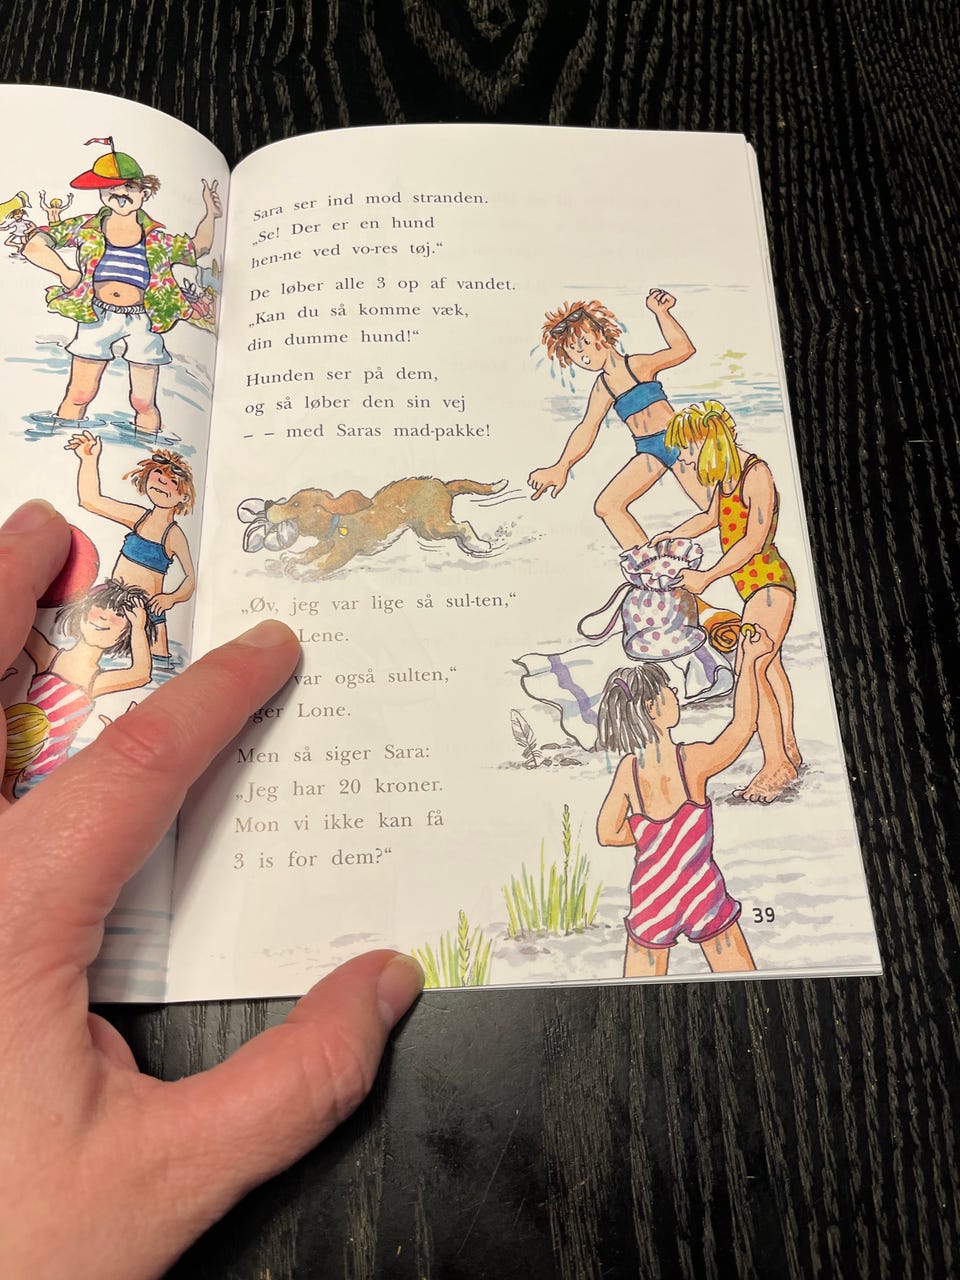 Sara ser ind mod stranden.
„Se! Der er en hund
hen-ne ved vo-res tøj.“
De løber alle 3 op af vandet.
„Kan du så komme væk,
din dumme hund!“
Hunden ser på dem,
og så løber den sin vej
– – med Saras mad-pakke!
„Øv, jeg var lige så sul-ten,“
Lene.
var også sulten,“
Lone.
Men så siger Sara:
„Jeg har 20 kroner.
Mon vi ikke kan få
3 is for dem?“
39